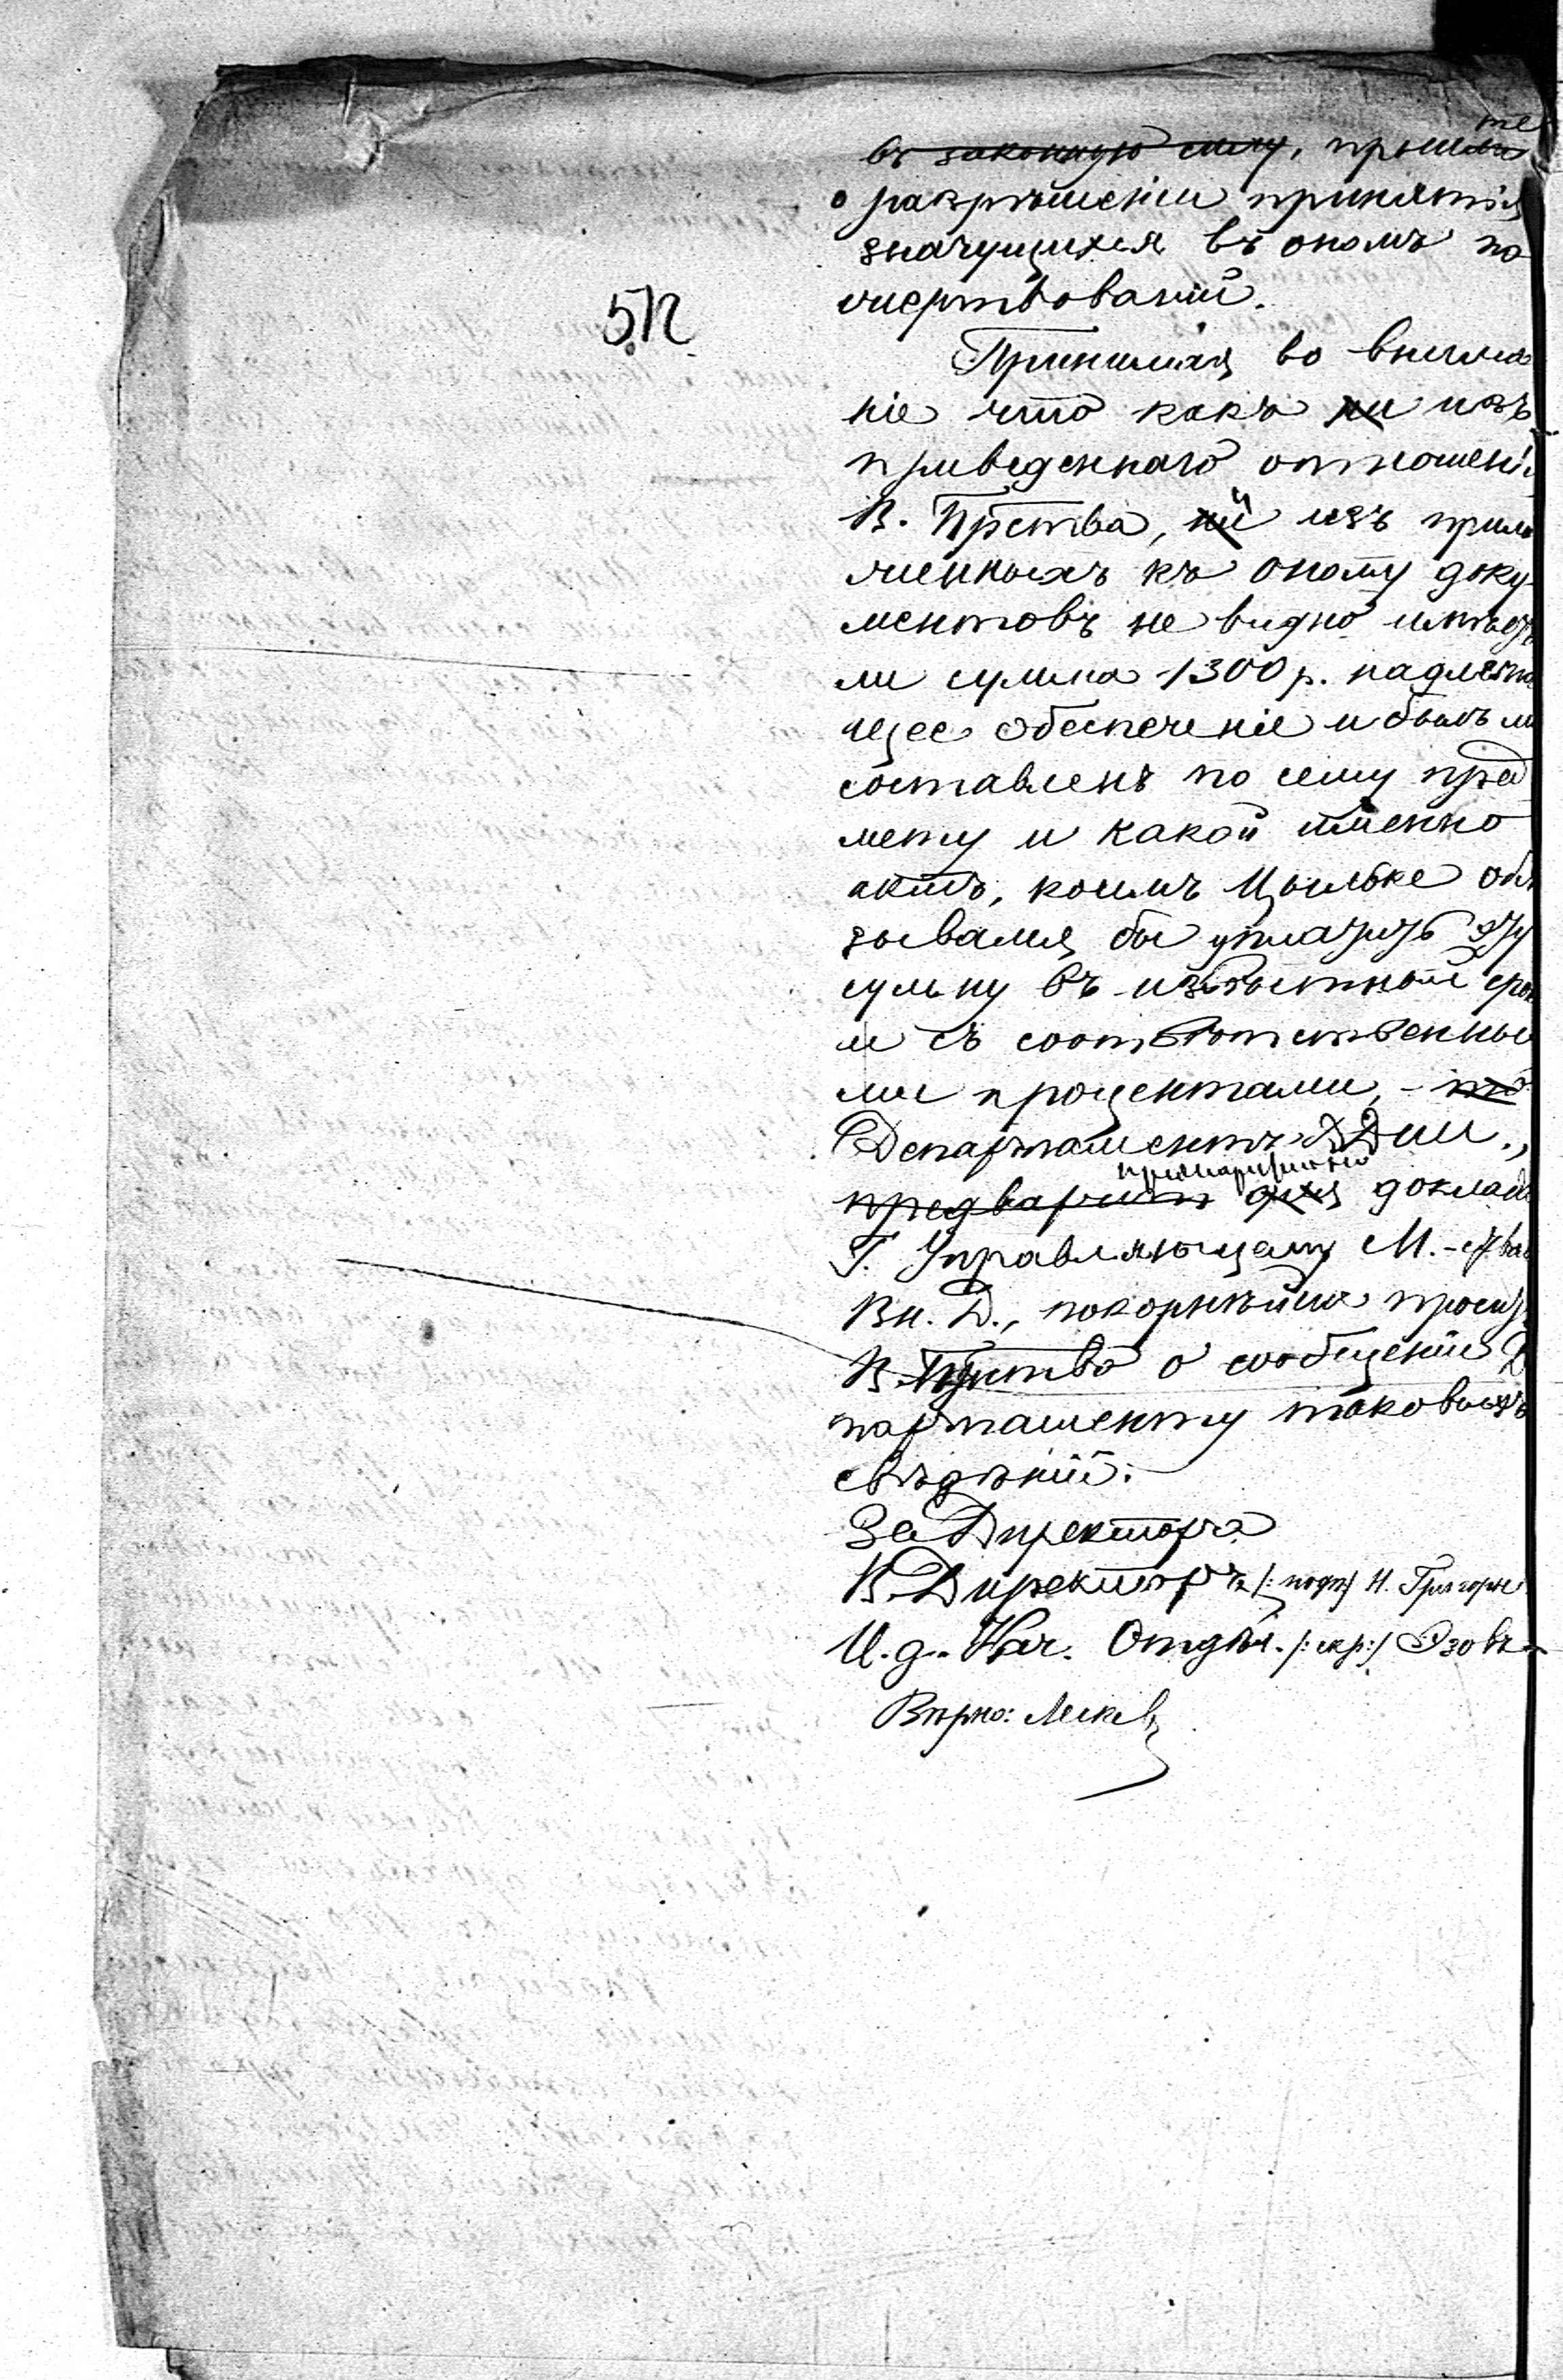 въ законную силу, просите
о разрѣшеніи принятія
значущихся въ ономъ по
жертвованій.
5Л
Принимая во внима
ніе что какъ ни изъ
приведеннаго отношенія
В. Прства, ни изъ прило
женныхъ къ оному доку-
ментовъ не видно имѣетъ
ли сумма 1300 р. надлежа
щее обезпеченіе и былъ ли
составленъ по сему пред
мету и какой именно
актъ, коимъ Цыльке обя
зывался бы уплатить эту
сумму въ извѣстный срокъ
и съ соотвѣтственны
ми процентами, - то
Департаментъ ДДИИ.,
предварит для доклада
Г. Управляющему М.-ства
Вн. Д., покорнѣйше проситъ
В. Прство о сообщеніи Д
партаменту таковыхъ
свѣдѣній.
За Директора
В. Директоръ /: подп) Н. Григорье
И. д. Нач. Отдѣл. /: скр:/ Эзовъ
Вѣрно: